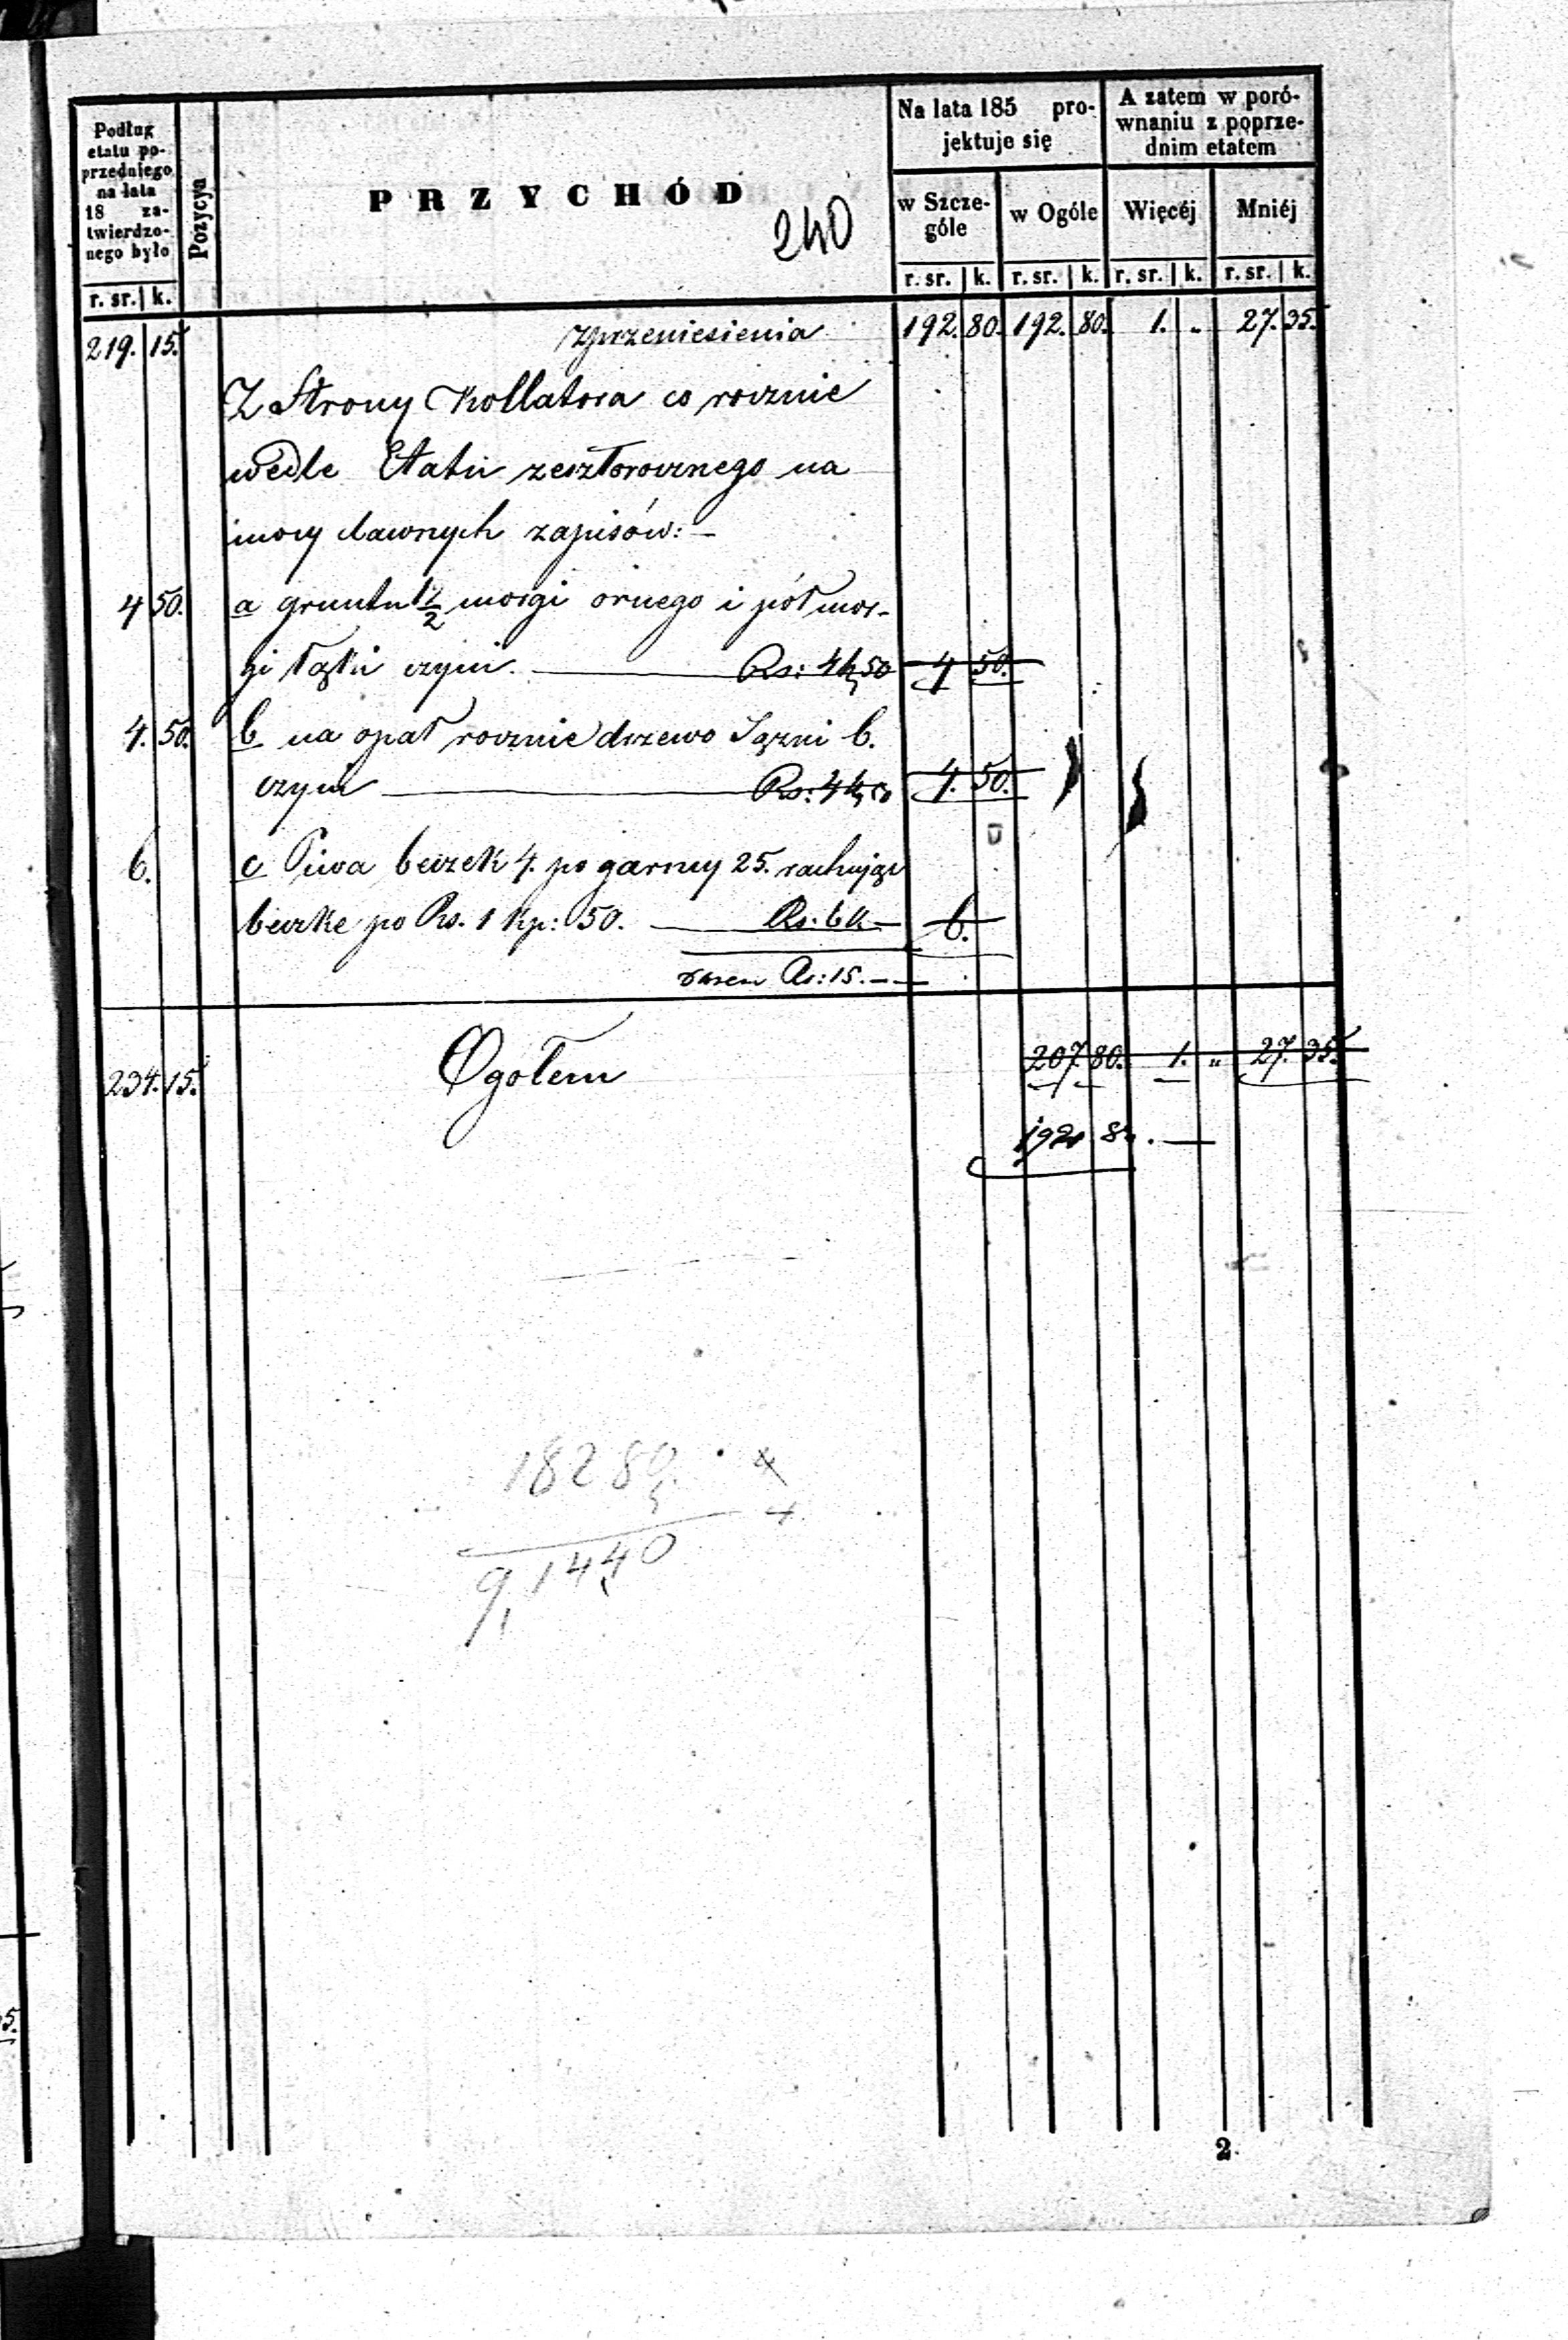 Podług
etatu po-
przedniego
na lata
18 za-
twierdzo-
nego było
r. sr. k.
Pozycya
PRZYCHÓD
240
Na lata 185 pro-
jektuje się
w Szcze-
góle
r. sr. k.
w Ogóle
r. sr. k.
A zatem w poró-
wnaniu z poprze-
dnim etatem
Więcéj
r. sr. k.
Mniéj
r. sr. k.
219. 15. z przeniesienia 192. 80. 192. 80. 1. „ 27. 35.
Z Strony Kollatora co rocznie
wedle Etatu zeszłorocznego na
mocy dawnych zapisów: —
4 50. a gruntu 1 1/2 morgi ornego i pół mor-
gi łąki czyni. Rs: 4 k, 50 4 50.
4. 50. b na opał rocznie drzewo Sążni 6.
czyni Rs: 4 k, 50 4. 50.
6. c Piwa beczek 4. po garncy 25. rachując
beczke po Rs. 1 kp: 50. Rs: 6 k — 6.
razem Rs: 15. —
234. 15. Ogołem 207. 80. 1. „ 27. 35.
192 80. —
182 80. 4
4
9,1440
2